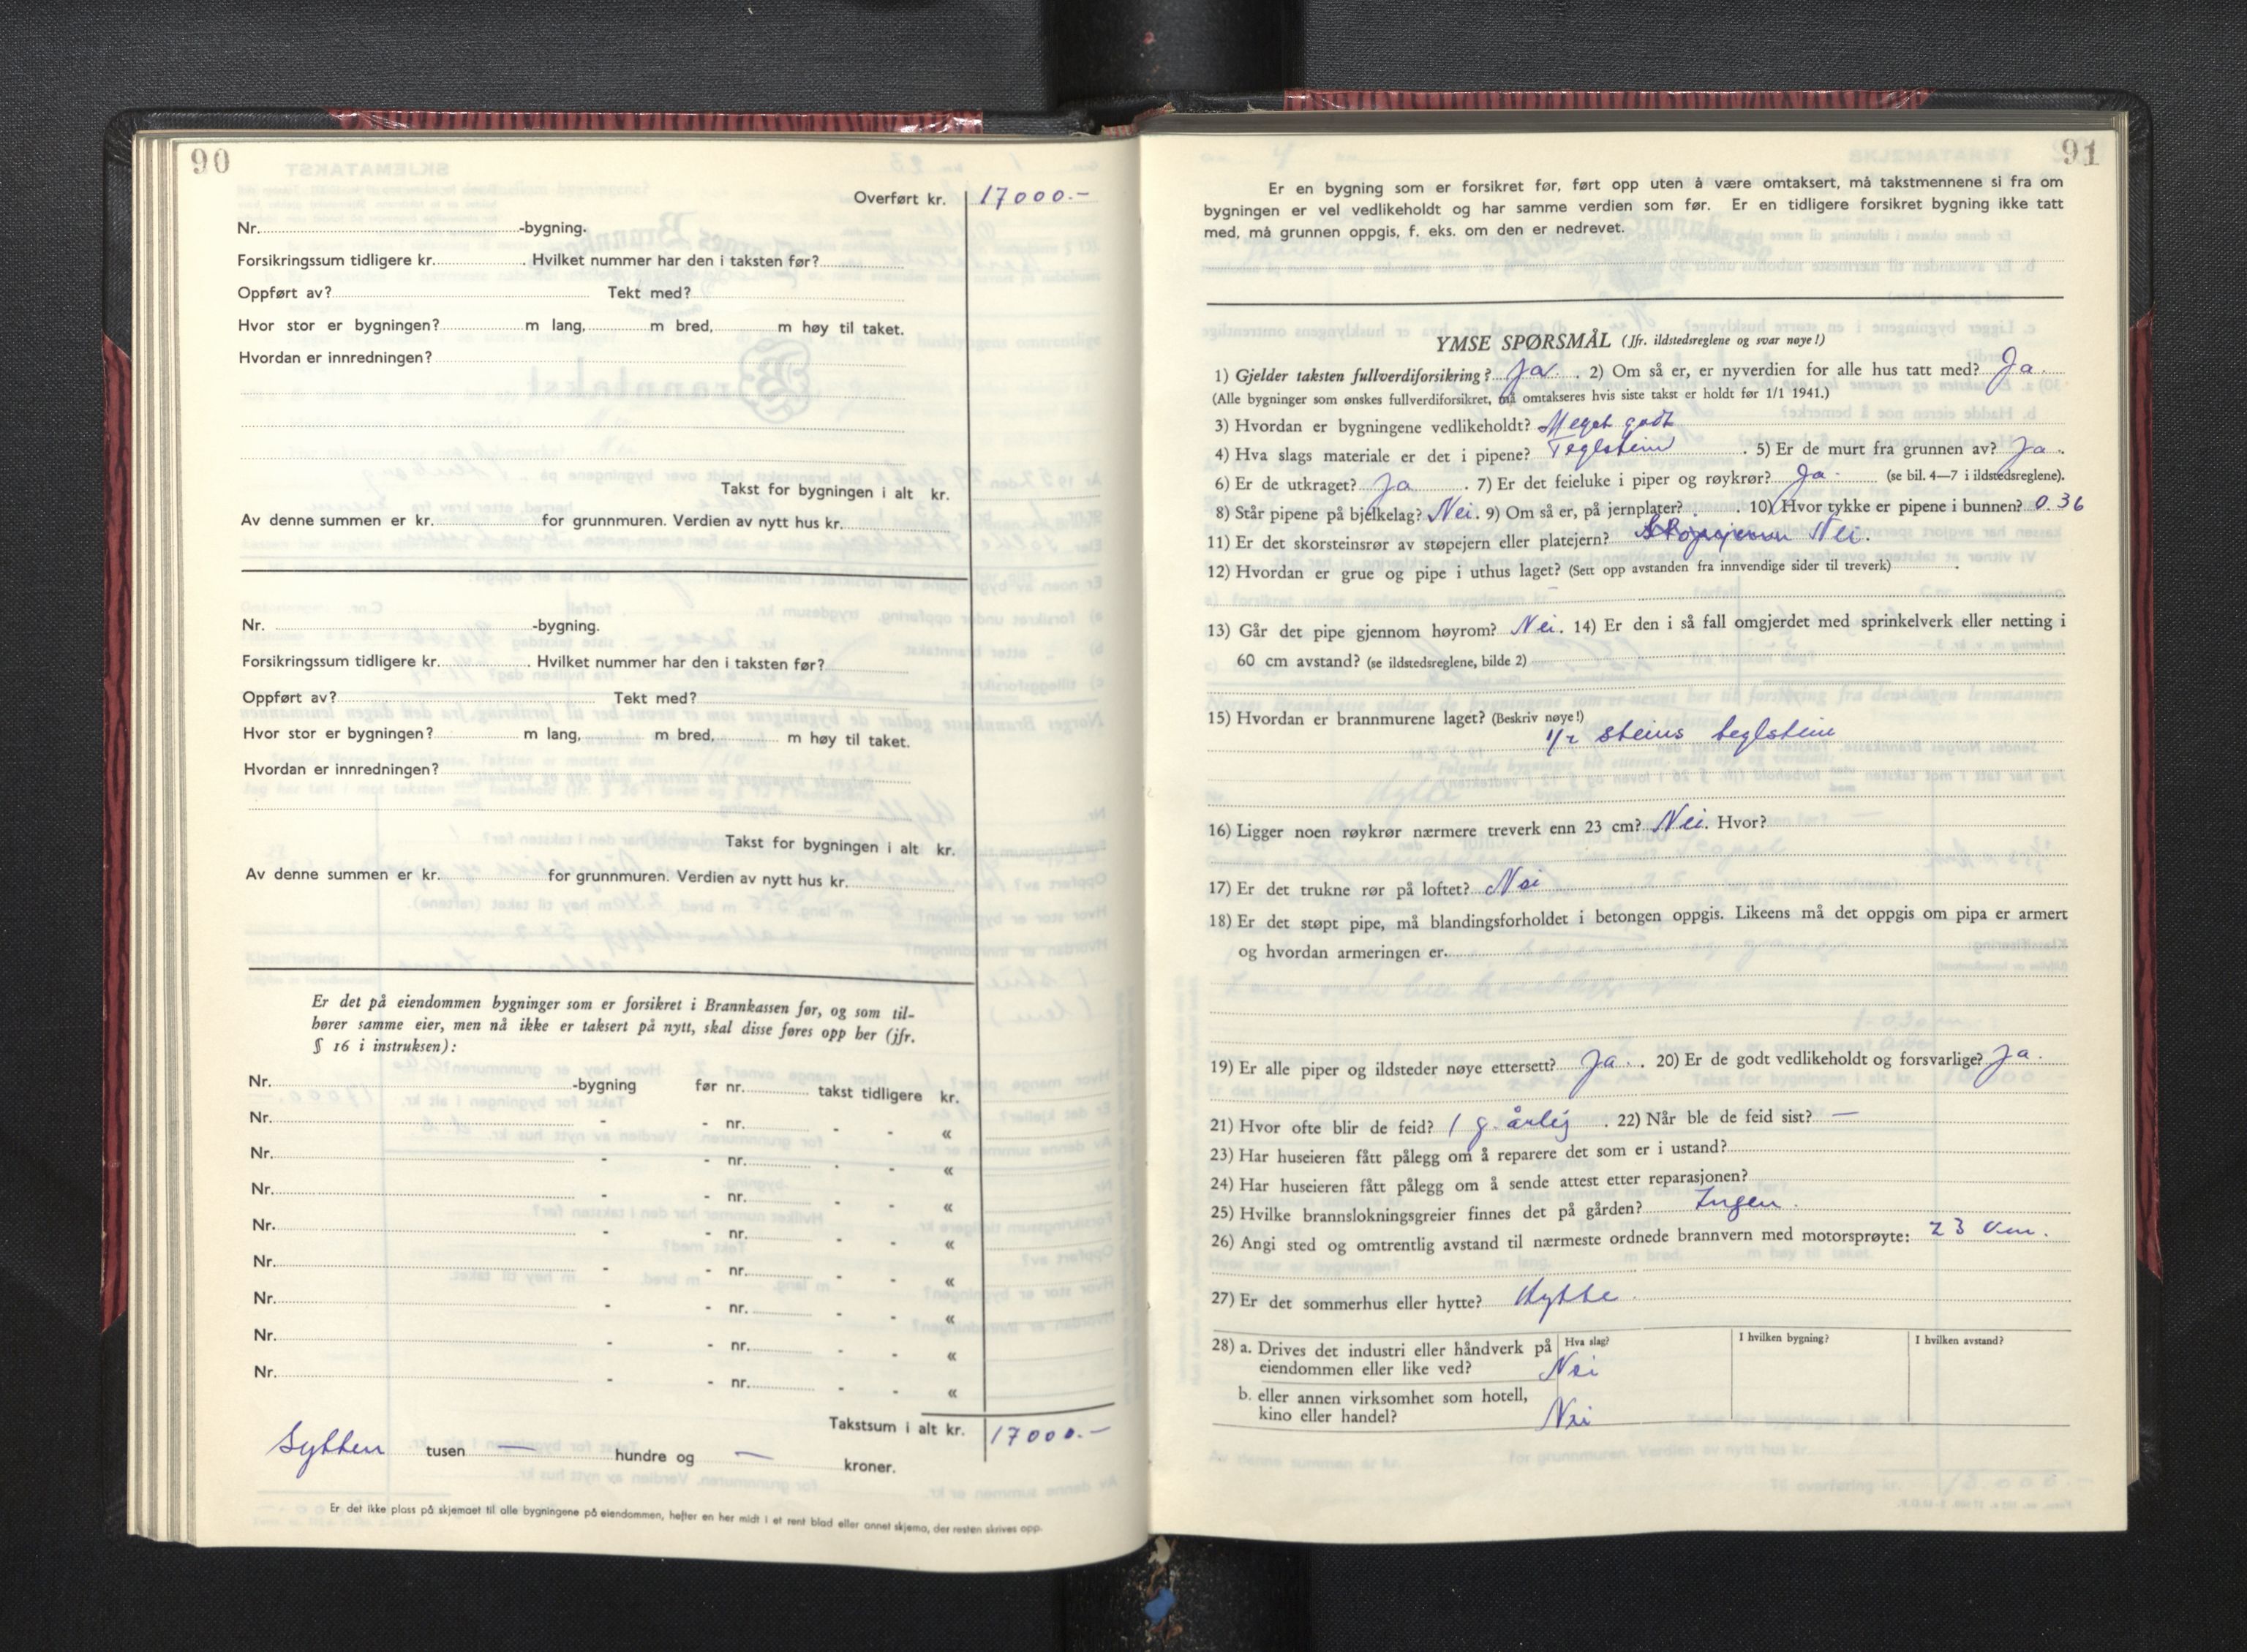 90
Overført kr. 17000.-
Nr. -bygning.
Forsikringssum tidligere kr. . Hvilket nummer har den i taksten før?
Oppført av? Tekt med?
Hvor stor er bygningen? m lang, m bred, m høy til taket.
Hvordan er innredningen?
Takst for bygningen i alt kr.
Av denne summen er kr. for grunnmuren. Verdien av nytt hus kr.
Nr. -bygning.
Forsikringssum tidligere kr. . Hvilket nummer har den i taksten før?
Oppført av? Tekt med?
Hvor stor er bygningen? m lang, m bred, m høy til taket.
Hvordan er innredningen?
Takst for bygningen i alt kr.
Av denne summen er kr. for grunnmuren. Verdien av nytt hus kr.
Er det på eiendommen bygninger som er forsikret i Brannkassen før, og som til-
hører samme eier, men nå ikke er taksert på nytt, skal disse føres opp her (jfr.
§ 16 i instruksen):
Nr. -bygning før nr. takst tidligere kr.
Nr. - - nr. - - «
Nr. - - nr. - - «
Nr. - - nr. - - «
Nr. - - nr. - - «
Nr. - - nr. - - «
Nr. - - nr. - - «
Nr. - - nr. - - «
Nr. - - nr. - - «
Takstsum i alt kr. 17000.-
Sytten tusen — hundre og — kroner.
Er det ikke plass på skjemaet til alle bygningene på eiendommen, hefter en her midt i et rent blad eller annet skjema, der resten skrives opp.
91
Er en bygning som er forsikret før, ført opp uten å være omtaksert, må takstmennene si fra om
bygningen er vel vedlikeholdt og har samme verdien som før. Er en tidligere forsikret bygning ikke tatt
med, må grunnen oppgis, f. eks. om den er nedrevet.
YMSE SPØRSMÅL (Jfr. ildstedsreglene og svar nøye!)
1) Gjelder taksten fullverdiforsikring? Ja. 2) Om så er, er nyverdien for alle hus tatt med? Ja.
(Alle bygninger som ønskes fullverdiforsikret, må omtakseres hvis siste takst er holdt før 1/1 1941.)
3) Hvordan er bygningene vedlikeholdt? Meget godt
4) Hva slags materiale er det i pipene? Teglstein . 5) Er de murt fra grunnen av? Ja.
6) Er de utkraget? Ja . 7) Er det feieluke i piper og røykrør? Ja. (se bil. 4—7 i ildstedsreglene).
8) Står pipene på bjelkelag? Nei. 9) Om så er, på jernplater? . 10) Hvor tykke er pipene i bunnen? 0.36
11) Er det skorsteinsrør av støpejern eller platejern? Nei.
12) Hvordan er grue og pipe i uthus laget? (Sett opp avstanden fra innvendige sider til treverk) .
13) Går det pipe gjennom høyrom? Nei. 14) Er den i så fall omgjerdet med sprinkelverk eller netting i
60 cm avstand? (se ildstedsreglene, bilde 2)
15) Hvordan er brannmurene laget? (Beskriv nøye!)
1/2 steins teglstein
16) Ligger noen røykrør nærmere treverk enn 23 cm? Nei. Hvor?
17) Er det trukne rør på loftet? Nei
18) Er det støpt pipe, må blandingsforholdet i betongen oppgis. Likeens må det oppgis om pipa er armert
og hvordan armeringen er.
19) Er alle piper og ildsteder nøye ettersett? Ja. . 20) Er de godt vedlikeholdt og forsvarlige? Ja.
21) Hvor ofte blir de feid? 1 g. årlig . 22) Når ble de feid sist? —
23) Har huseieren fått pålegg om å reparere det som er i ustand?
24) Har huseieren fått pålegg om å sende attest etter reparasjonen?
25) Hvilke brannslokningsgreier finnes det på gården? Ingen.
26) Angi sted og omtrentlig avstand til nærmeste ordnede brannvern med motorsprøyte: 23 km.
27) Er det sommerhus eller hytte? Hytte.
28) a. Drives det industri eller håndverk på Hva slag? I hvilken bygning? I hvilken avstand?
eiendommen eller like ved? Nei
b. eller annen virksomhet som hotell,
kino eller handel? Nei